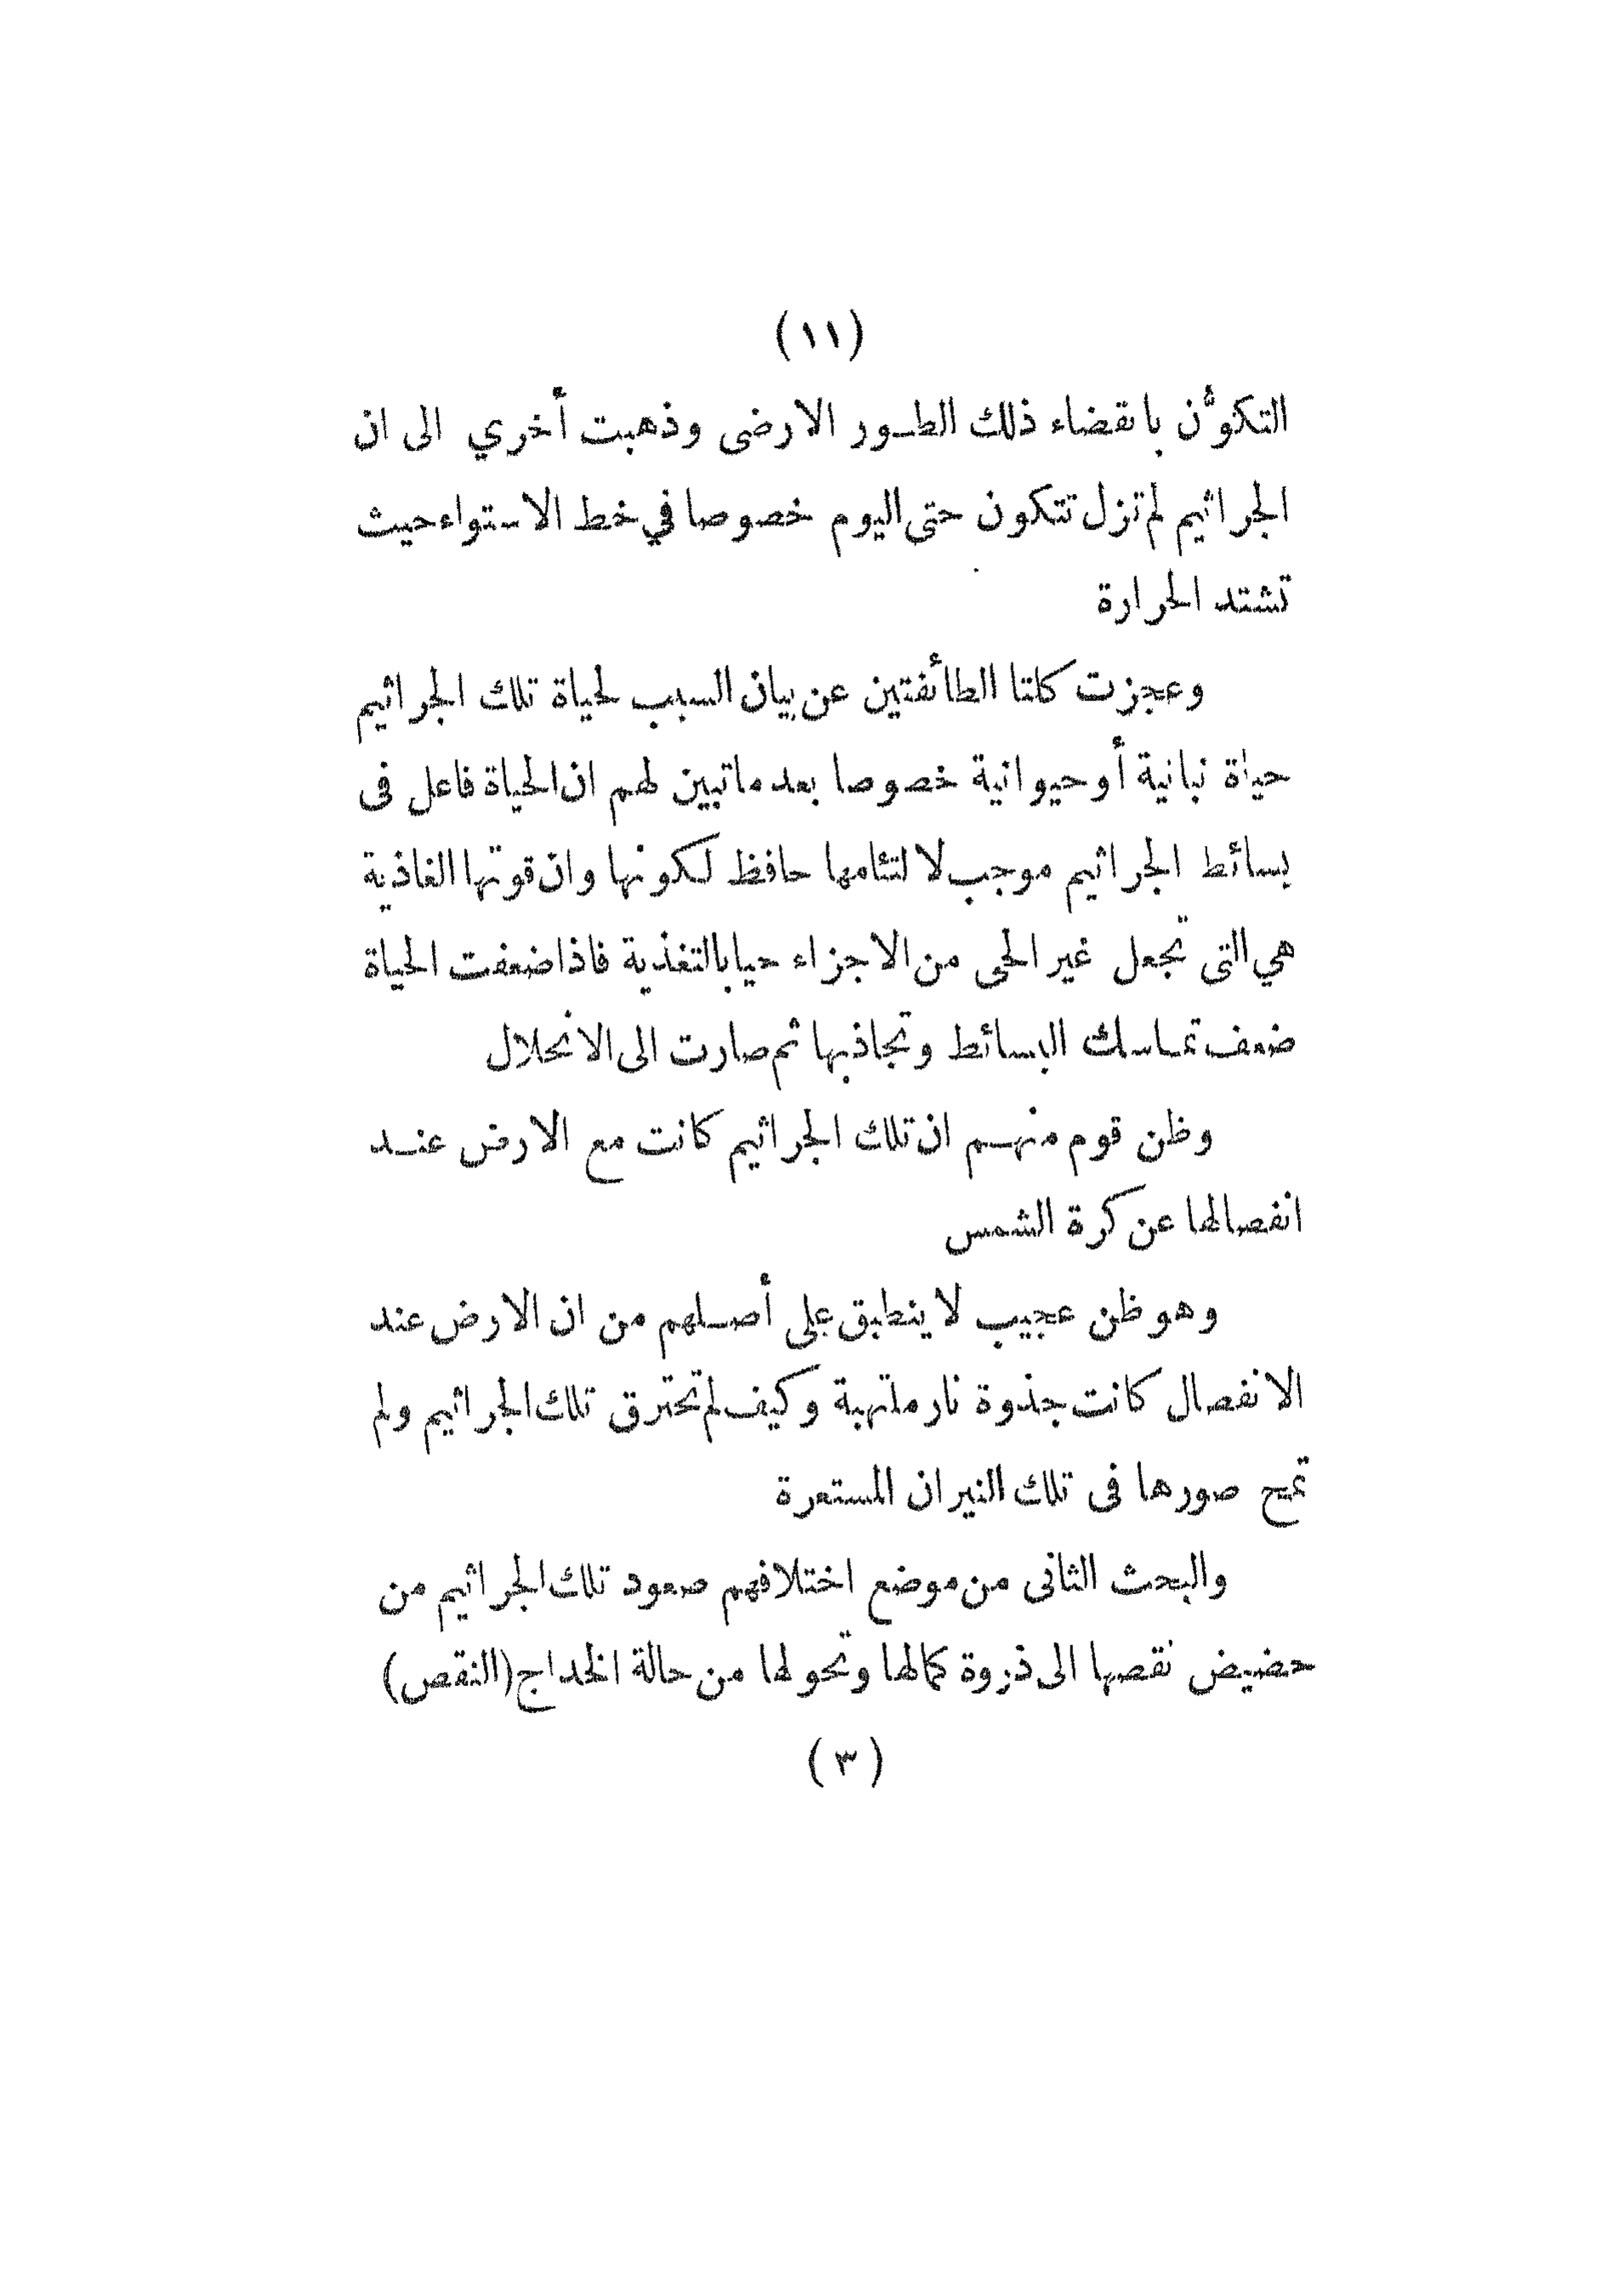 (١١)
التكوُّن بانقضاء ذلك الطـور الارضى وذهبت أخري الى ان
الجراثيم لم تزل تتكون حتى اليوم خصوصا في خط الاستواء حيث
تشتد الحرارة
وعجزت كلتا الطائفتين عن بيان السبب لحياة تلك الجراثيم
حياة نباتية أو حيوانية خصوصا بعد ما تبين لهم ان الحياة فاعل فى
بسائط الجراثيم موجب لالتئامها حافظ لكونها وان قوتها الغاذية
هي التى تجعل غير الحى من الاجزاء حيا بالتغذية فاذا ضعفت الحياة
ضعف تماسك البسائط وتجاذبها ثم صارت الى الانحلال
وظن قوم منهـم ان تلك الجراثيم كانت مع الارض عنـد
انفصالها عن كرة الشمس
وهو ظن عجيب لا ينطبق على أصـلهم من ان الارض عند
الانفصال كانت جذوة نار ملتهبة وكيف لم تحترق تلك الجراثيم ولم
تمح صورها فى تلك النيران المستعرة
والبحث الثانى من موضع اختلافهم صعود تلك الجراثيم من
حضيض نقصها الى ذروة كمالها وتحولها من حالة الخداج (النقص)
(٣)